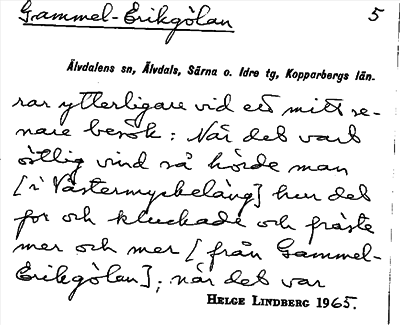 Gammel-Erikgölan 5
Älvdalens sn, Älvdals, Särna o. Idre tg, Kopparbergs län.
rar ytterligare vid ett mitt se-
nare besök: När det vart
östlig vind så hörde man
[i Västermyckeläng] hur det
for och kluckade och fräste
mer och mer [från Gammel-
Erikgölan]; när det var
HELGE LINDBERG 1965.